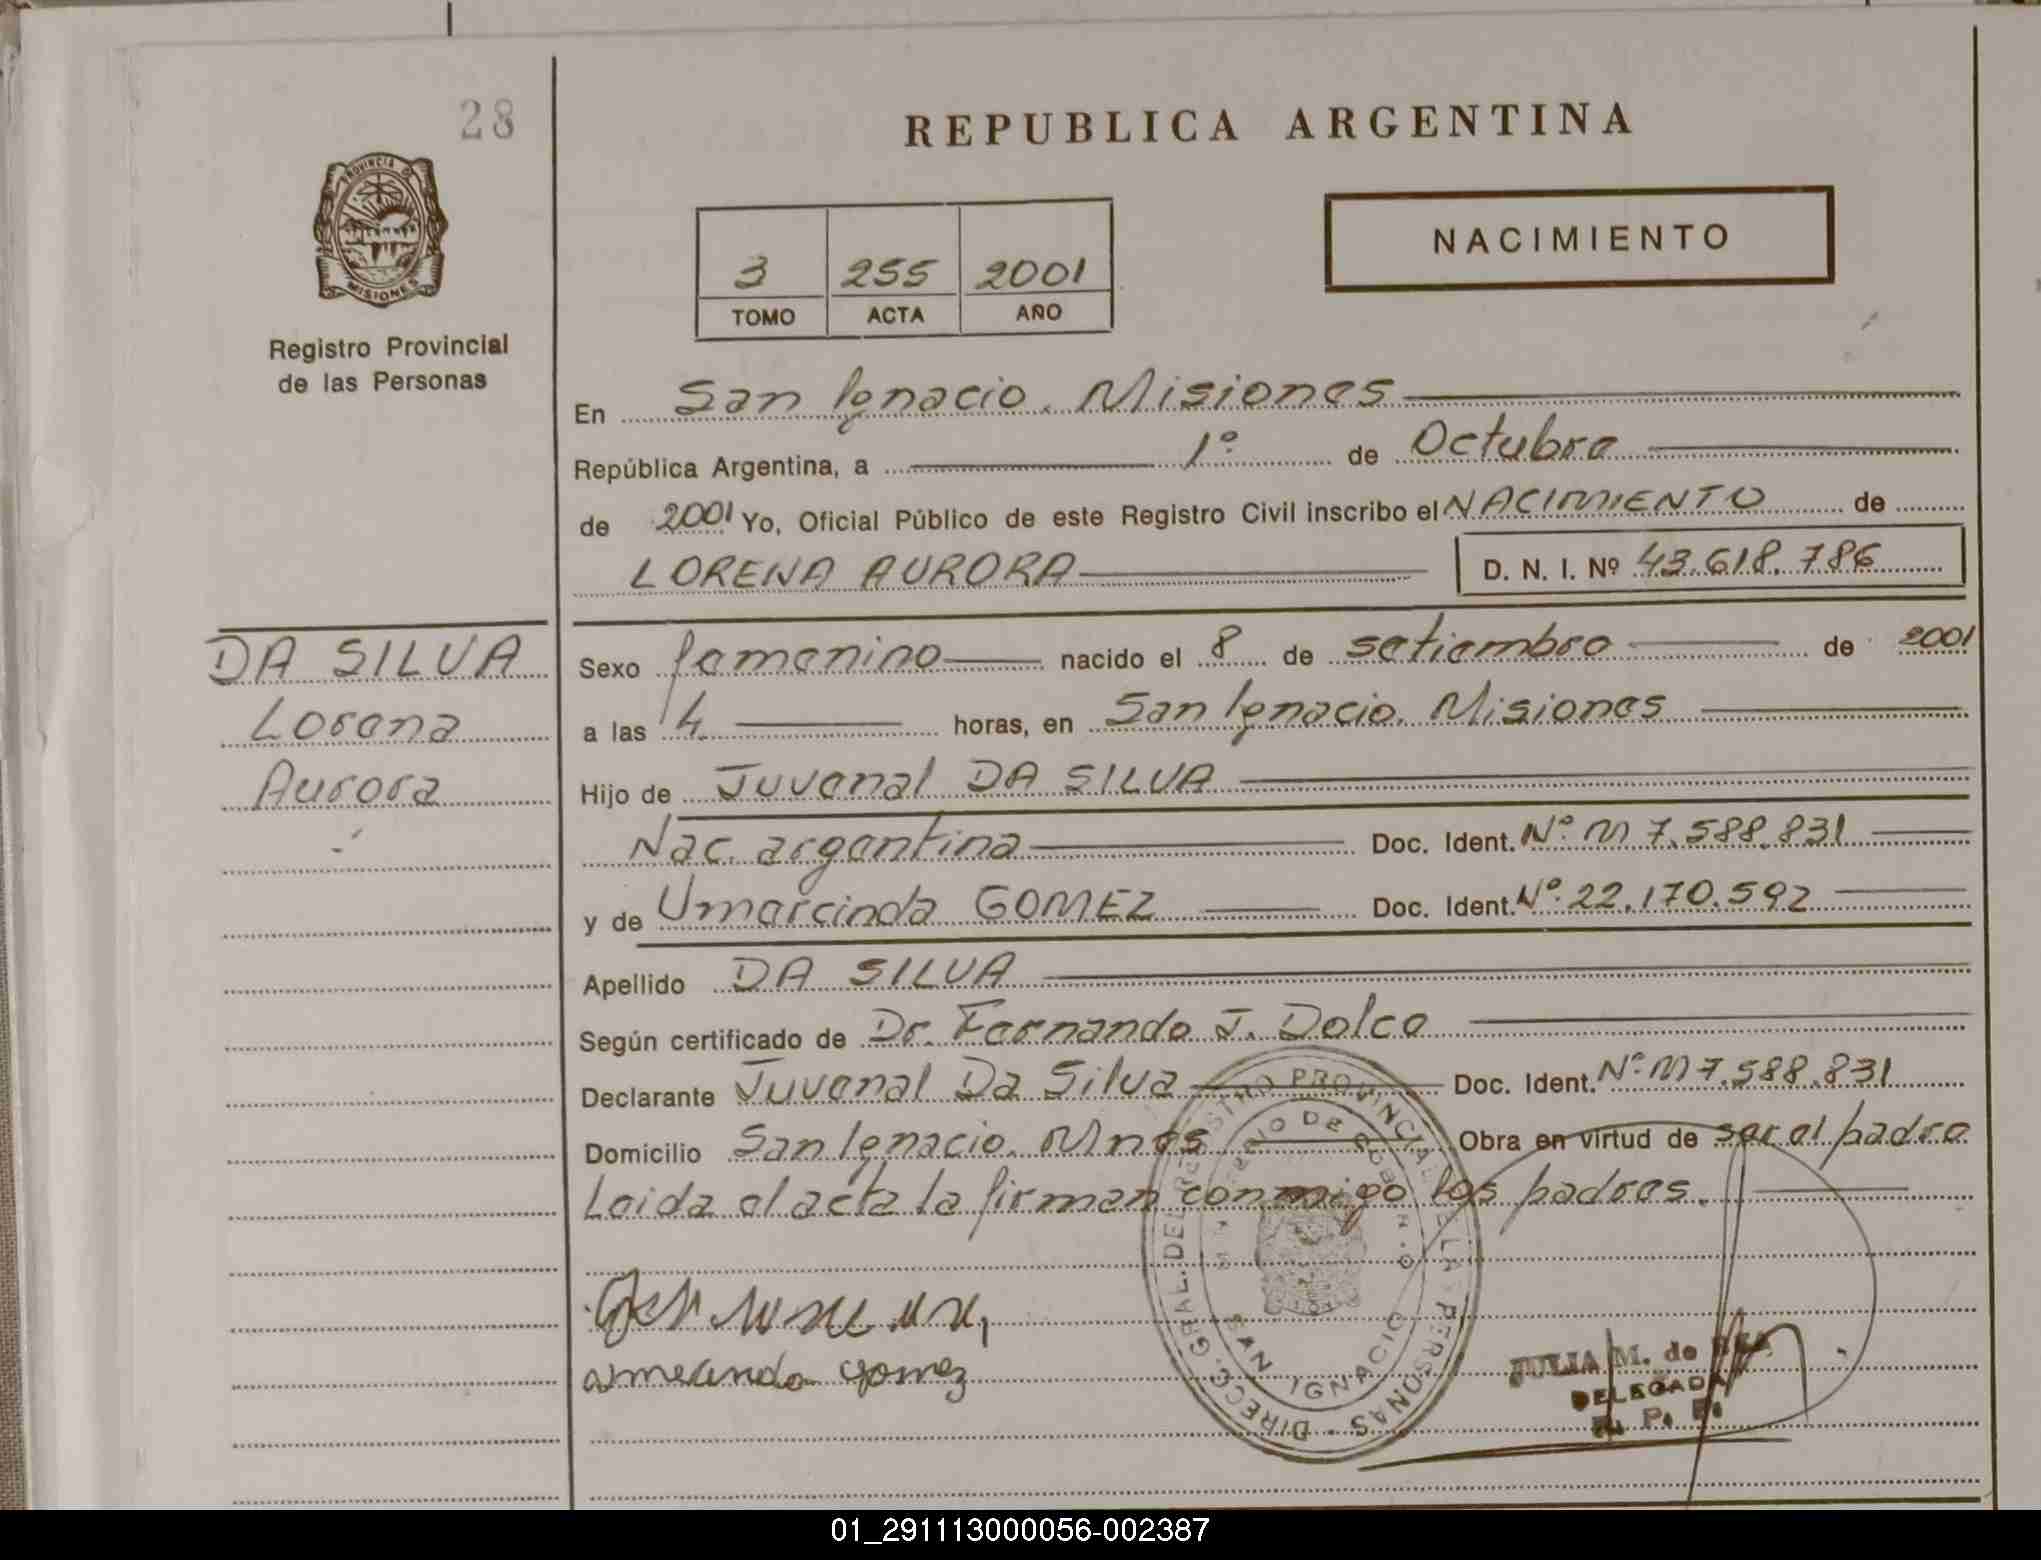 28
REPUBLICA ARGENTINA
PROVINCIA DE
MISIONES
Registro Provincial
de las Personas
3 255 2001
TOMO ACTA AÑO
NACIMIENTO
En San Ignacio. Misiones
República Argentina, a 1º de Octubre
de 2001 Yo, Oficial Público de este Registro Civil inscribo el NACIMIENTO de
LORENA AURORA D. N. I. Nº 43.618.786
DA SILVA
Lorena
Aurora
Sexo femenino nacido el 8 de setiembre de 2001
a las 4 horas, en San Ignacio. Misiones
Hijo de Juvenal DA SILVA
Nac. argentina Doc. Ident. Nº M 7.588.831
y de Umarcinda GOMEZ Doc. Ident. Nº 22.170.592
Apellido DA SILVA
Según certificado de Dr. Fernando J. Dolce
Declarante Juvenal Da Silva Doc. Ident. Nº M 7.588.831
Domicilio San Ignacio. Mnes Obra en virtud de ser el padre
Leida el acta la firman conmigo los padres.
DIRECC. GRAL. DEL REGISTRO PROVINCIAL DE LAS PERSONAS
MINISTERIO DE GOBIERNO
SAN IGNACIO
gomez
JULIA M. de
DELEGADA
R. P. P.
01_291113000056-002387